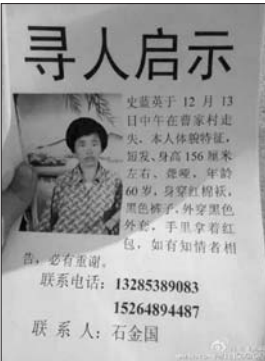 寻人启示
史蓝英于 12 月 13
日中午在曹家村走
失，本人体貌特征，
短发、身高 156 厘米
左右、聋哑，年龄
60 岁，身穿红棉袄，
黑色裤子，外穿黑色
外套，手里拿着红
包，如有知情者相
告，必有重谢。
联系电话：13285389083
15264894487
联 系 人：石金国